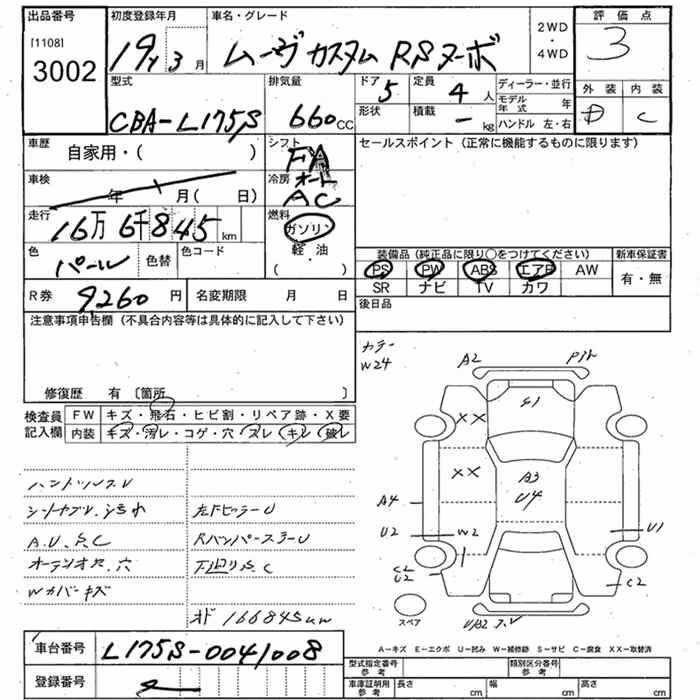 出品番号
[1108]
3002
初度登録年月
19年3月
車名・グレード
ムーヴ カスタム RSターボ
2WD・4WD
評価点
3
型式
CBA-L175S
排気量
660cc
ドア
5
形状
定員
4人
積載
-kg
ディーラー・並行
モデル年式 年
ハンドル 左・右
外装
D
内装
C
車歴
自家用・( )
シフト
FA
車検
年 月( 日)
冷房
オート
AC
走行
16万6千845km
燃料
ガソリン
軽・油
( ・ )
色
パール
色替
色コード
セールスポイント(正常に機能するものに限ります)
装備品(純正品に限り○をつけてください)
PS PW ABS エアB AW
SR ナビ TV カワ
新車保証書
有・無
後日品
R券 9260円
名変期限 月 日
注意事項申告欄(不具合内容等は具体的に記入して下さい)
修復歴 有〔箇所 〕
検査員記入欄
FW キズ・飛石・ヒビ割・リペア跡・X要
内装 キズ・汚レ・コゲ・穴・スレ・キレ・破レ
シートナプレ.汚れ
A.U.S.C
Wカバーキズ
左FピラーU
RバンパーステーU
下廻りS.C
オド 166845km
W24
A2
G1
XX
XX
A3
U4
A4
U2
W2
U1
C2
U2
C2
スペア
A-キズ E-エクボ U-凹み W-補修跡 S-サビ C-腐食 XX-取替済
車台番号
L175S-0041008
登録番号
型式指定番号 参考
類別区分番号 参考
車庫証明用 参考
長さ cm
幅 cm
高さ cm